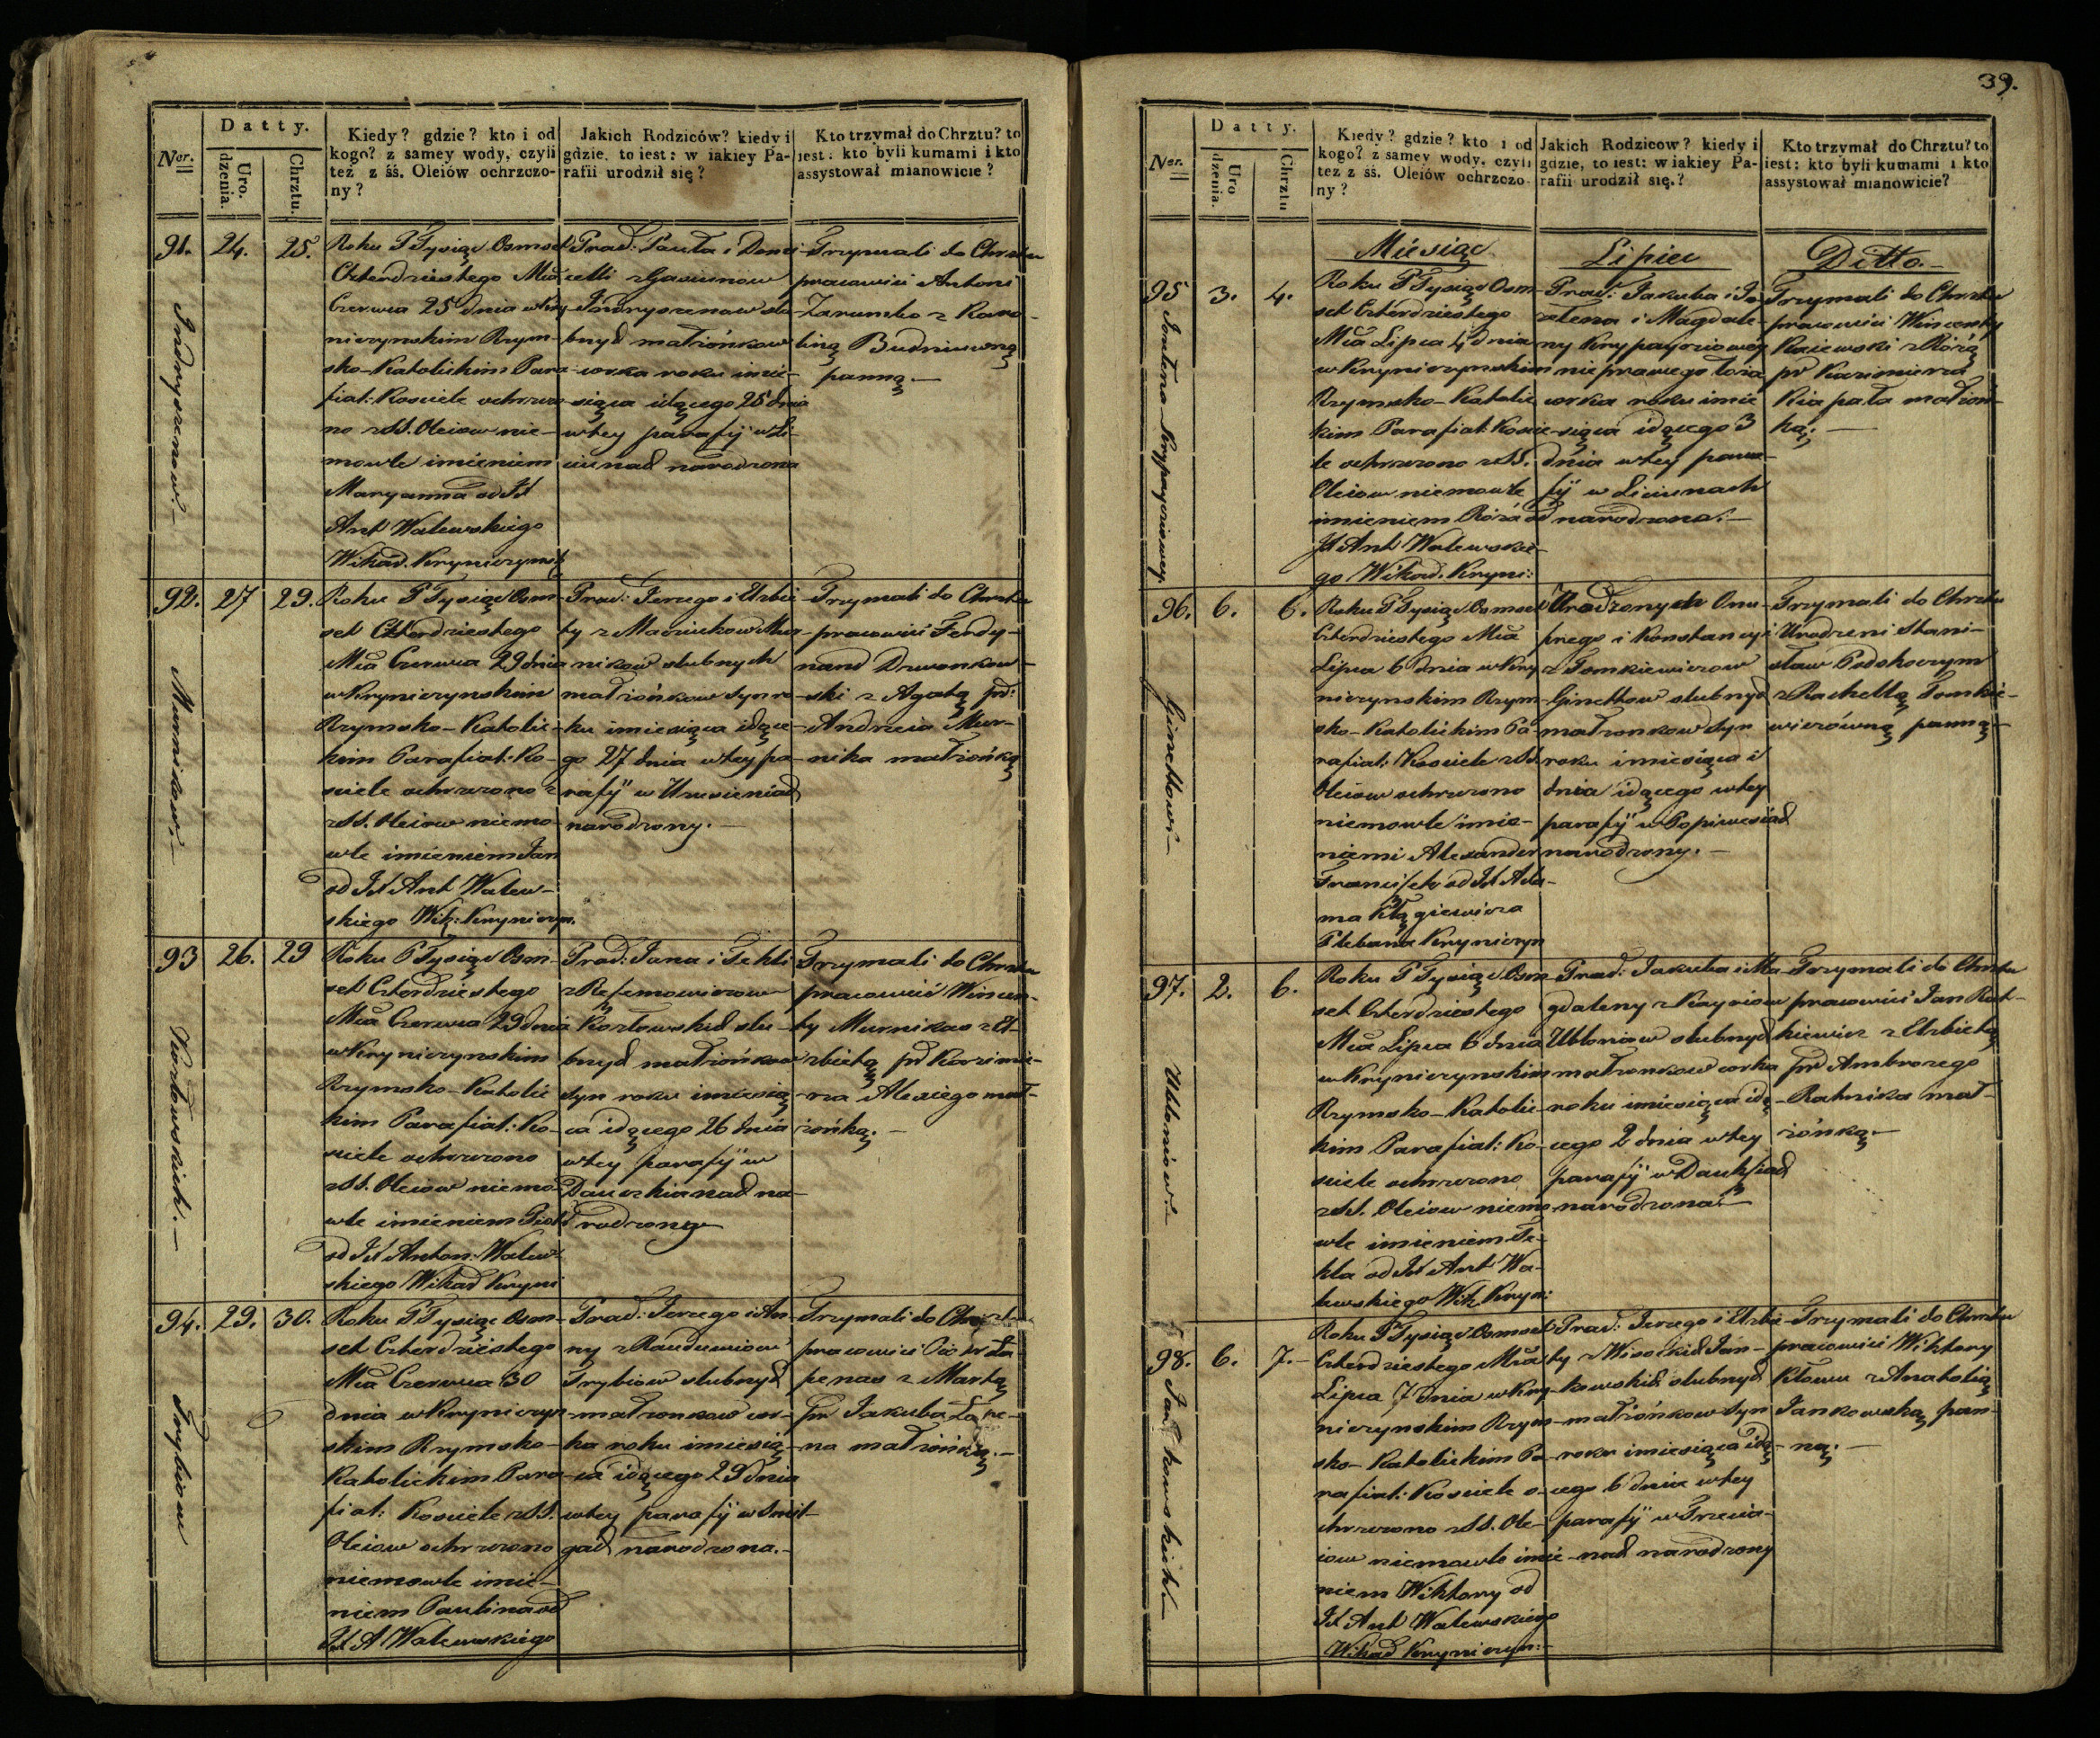 39.
Datty.
Ner.
Uro.
dzenia.
Chrztu.
Kiedy? gdzie? kto i od
kogo? z samey wody, czyli
też z śś. Oleiów ochrzczo-
ny?
Jakich Rodziców? kiedy i
gdzie, to iest: w iakiey Pa-
rafii urodził się?
Kto trzymał do Chrztu? to
iest: kto byli kumami i kto
assystował mianowicie?
91.
Indryszenow.
24.
25.
Roku P Tysiąc Osmset
Czterdziestego Mca
Czerwca 25 dnia w Kry-
niczynskim Rzym-
sko-Katolickim Para-
fial: Kosciele ochrzczo-
no z SS. Oleiow nie-
mowle imieniem
Maryanna od JX
Ant Walewskiego
Wikad. Kryniczynsk
Prad: Pawła i Domi-
celli z
Indryszenow slu-
bnych małżónkow
corka roku i mie-
siąca idącego 25 dnia
w tey parafij w Li-
ciunach narodzona
Trzymali do Chrztu
pracowici Antoni
Zarumbo z Karo-
liną Budniuwną
panną.
92.
Murnikow.
27
29.
Roku P Tysiąc Osm-
set Czterdziestego
Mca Czerwca 29 dnia
w Kryniczynskim
Rzymsko-Katolic-
kim Parafial: Ko-
sciele ochrzczono
z SS. Oleiow niemo-
wle imieniem Jan
od JX Ant Walew-
skiego Wik: Kryniczyn.
Prad: Jerzego i Elżbie-
ty z Maciukow Mur-
nikow slubnych
małżónkow syn ro-
ku i miesiąca idące-
go 27 dnia w tey pa-
rafij w
narodzony.
Trzymali do Chrztu
pracowici Ferdy-
nand Dzwonkow-
ski z Agatą pr:
Andrzeia Mur-
nika małżónką
93
Kozłowskich.
26.
29
Roku P Tysiąc Osm-
set Czterdziestego
Mca Czerwca 29 dnia
w Kryniczynskim
Rzymsko-Katolic
kim Parafial: Ko-
sciele ochrzczono
z SS. Oleiow niemo-
wle imieniem Piotr
od JX Anton: Walew-
skiego Wikad Kryni
Prad: Jana i Tekli
z
Kozłowskich slu-
bnych małżónkow
syn roku i miesią-
ca idącego 26 dnia
w tey parafij w
Dauczkianach na-
rodzony
Trzymali do Chrztu
pracowici Wincen-
ty Murnikas z El-
zbietą pr Kazimie-
rza Alexiego mał-
żónką.
94.
Trybiow
29.
30.
Roku P Tysiąc Osm-
set Czterdziestego
Mca Czerwca 30
dnia w Kryniczyn-
skim Rzymsko-
Katolickim Para-
fial: Kosciele z SS.
Oleiow ochrzczono
niemowle imie-
niem Paulina od
JX A Walewskiego
Prad: Jerzego i An-
ny z
Trybiow slubnych
małżonkow cor-
ka roku i miesią-
ca idącego 29 dnia
w tey parafij w
narodzona.
Trzymali do Chrztu
pracowici Piotr Ła
penas z Martą
pr Jakuba Łape-
na małżónką.
Datty.
Ner.
Uro
dzenia.
Chrztu
Kiedy? gdzie? kto i od
kogo? z samey wody, czyli
też z śś. Oleiów ochrzczo-
ny?
Jakich Rodzicow? kiedy i
gdzie, to iest: w iakiey Pa-
rafii urodził się.?
Kto trzymał do Chrztu? to
iest: kto byli kumami i kto
assystował mianowicie?
Miesiąc
Lipiec
Ditto.
95
3.
4.
Roku P Tysiąc Osm-
set Czterdziestego
Mca Lipca 4 dnia
w Kryniczynskim
Rzymsko-Katolic
kim Parafial: Koście-
le ochrzczono z SS.
Oleiow niemowle
imieniem Róża od
JX Ant Walewskie-
go Wikad. Kryni:
Prad: Jakuba i
i Magdale-
ny
nieprawego łoża
corka roku i mie
siąca idącego 3
dnia w tey para-
fij w Liciunach
narodzona.
Trzymali do Chrztu
pracowici Wincenty
z Różą
pr Kazimierza
małżon-
ką.
96.
Ginettow.
6.
6.
Roku P Tysiąc Osmset
Czterdziestego Mca
Lipca 6 dnia w Kry-
niczynskim Rzym-
sko-Katolickim Pa-
rafial: Kosciele z SS.
Oleiow ochrzczono
niemowle imio-
niemi Alexander
Franciszek od JX Ada-
ma
Plebana Kryniczyn
Urodzonych Onu-
frego i Konstancyi
z Tomkiewiczow
Ginettow slubnych
małżonkow syn
roku i miesiąca i
dnia idącego w tey
parafij w Popiwesiach
narodzony.
Trzymali do Chrztu
Urodzeni Stani-
sław Podskoczym
z Rachellą Tomkie-
wiczówną panną
97.
Ubloniow.
2.
6.
Roku P Tysiąc Osm-
set Czterdziestego
Mca Lipca 6 dnia
w Kryniczynskim
Rzymsko-Katolic-
kim Parafial: Ko-
sciele ochrzczono
z SS. Oleiow niemo-
wle imieniem Te-
kla od JX Ant Wa-
lewskiego Wik Kryn:
Prad: Jakuba i Ma-
gdaleny z
Ubloniow slubnych
małżonkow corka
roku i miesiąca idą-
cego 2 dnia w tey
parafij w
narodzona.
Trzymali do Chrztu
pracowici Jan Rat-
kiewicz z Elzbietą
pr Ambrożego
Ratnika mał-
żónką.
98.
Jankowskich.
6.
7.
Roku P Tysiąc Osmset
Czterdziestego Mca
Lipca 7 dnia w Kry-
niczynskim Rzym-
sko-Katolickim Pa-
rafial: Kosciele o-
chrzczono z SS. Ole-
iow niemowle imie-
niem Wiktory od
JX Ant Walewskiego
Wikad Kryniczyn:
Prad: Jerzego i Elzbie-
ty z Wisockich Jan-
kowskich slubnych
małżónkow syn
roku i miesiąca idą-
cego 6 dnia w tey
parafij w
narodzony
Trzymali do Chrztu
pracowici Wiktory
z Anatolią
Jankowską pan-
ną.